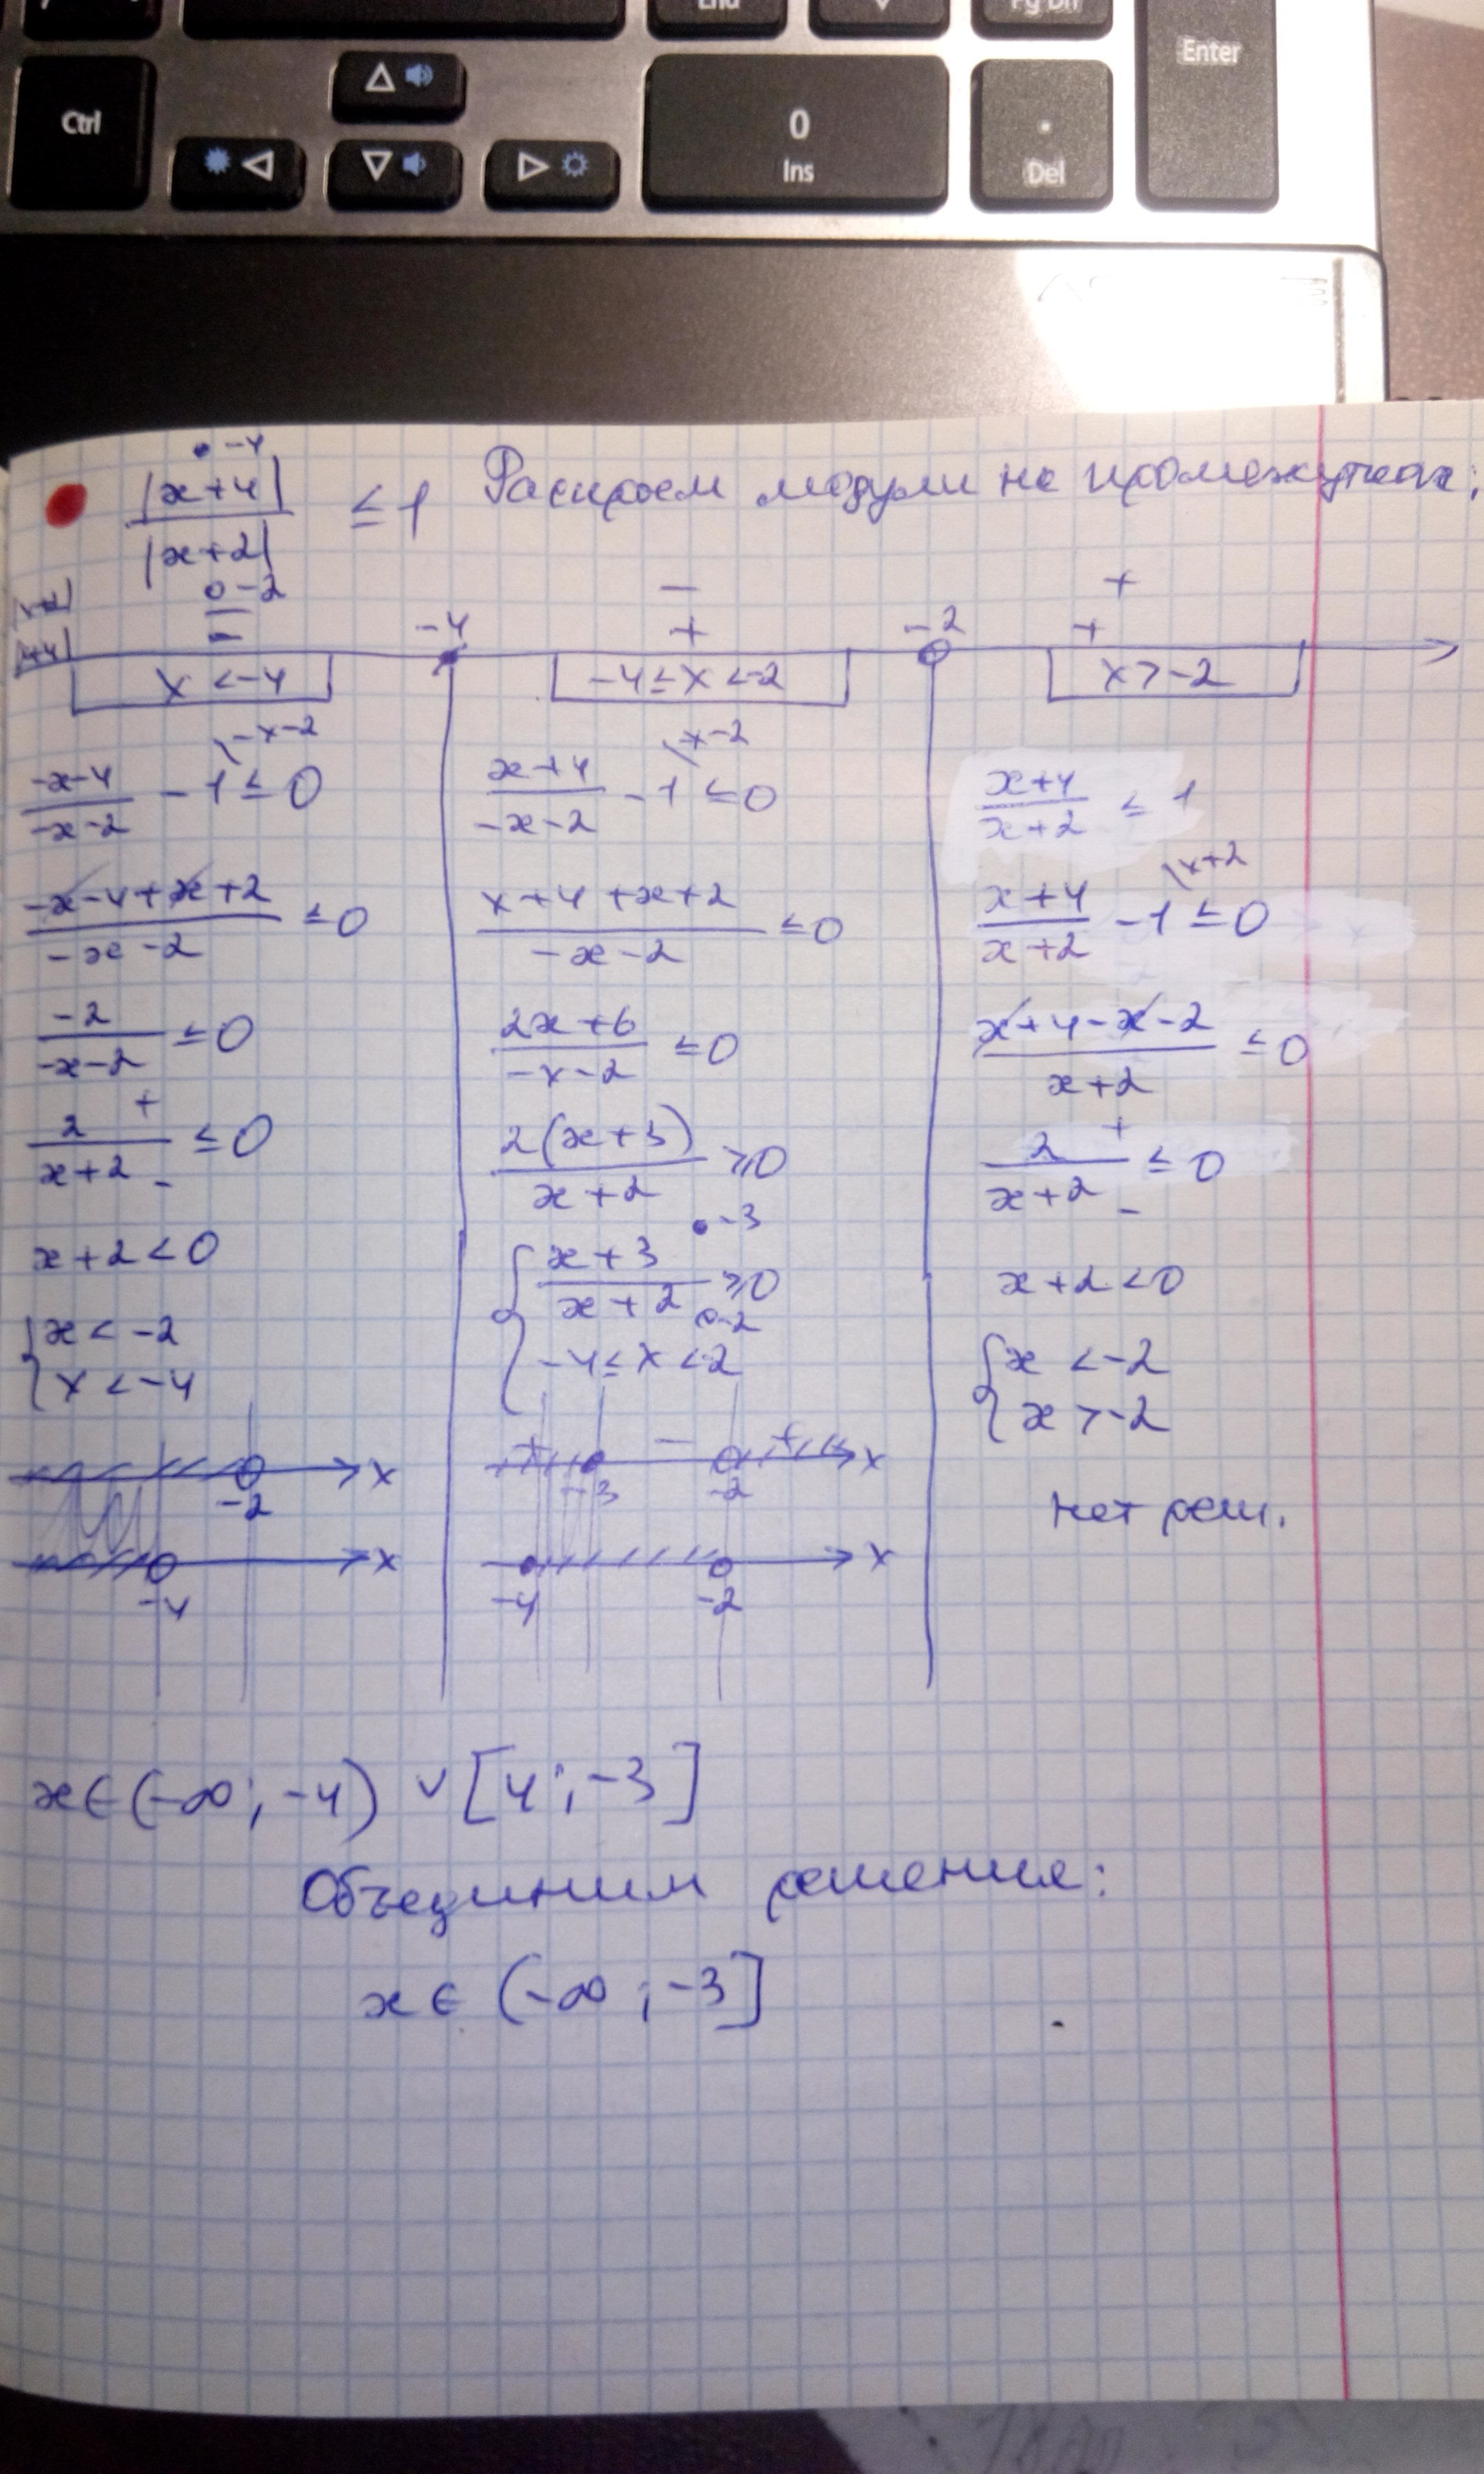 End
Pg Dn
Enter
Ctrl
0
Ins
.
Del
• -4
|x+4|
|x+2|
≤ 1
Раскроем модули на промежутках:
o -2
-
-
-
+
+
+
-4
-2
x < -4
-4 ≤ x < -2
x > -2
\-x-2
(-x-4)/(-x-2) - 1 ≤ 0
(-x-4+x+2)/(-x-2) ≤ 0
(-2)/(-x-2) ≤ 0
2/(x+2) ≤ 0
+
-
x+2 < 0
{ x < -2
x < -4
-2
x
-4
x
\x-2
(x+4)/(-x-2) - 1 ≤ 0
(x+4+x+2)/(-x-2) ≤ 0
(2x+6)/(-x-2) ≤ 0
2(x+3)/(x+2) ≥ 0
• -3
{ (x+3)/(x+2) ≥ 0
o -2
-4 ≤ x < -2
+ - +
-3 -2 x
-4 -2 x
(x+4)/(x+2) ≤ 1
\x+2
(x+4)/(x+2) - 1 ≤ 0
(x+4-x-2)/(x+2) ≤ 0
2/(x+2) ≤ 0
+
-
x+2 < 0
{ x < -2
x > -2
нет реш.
x ∈ (-∞; -4) ∨ [4; -3]
Объединим решения:
x ∈ (-∞; -3]